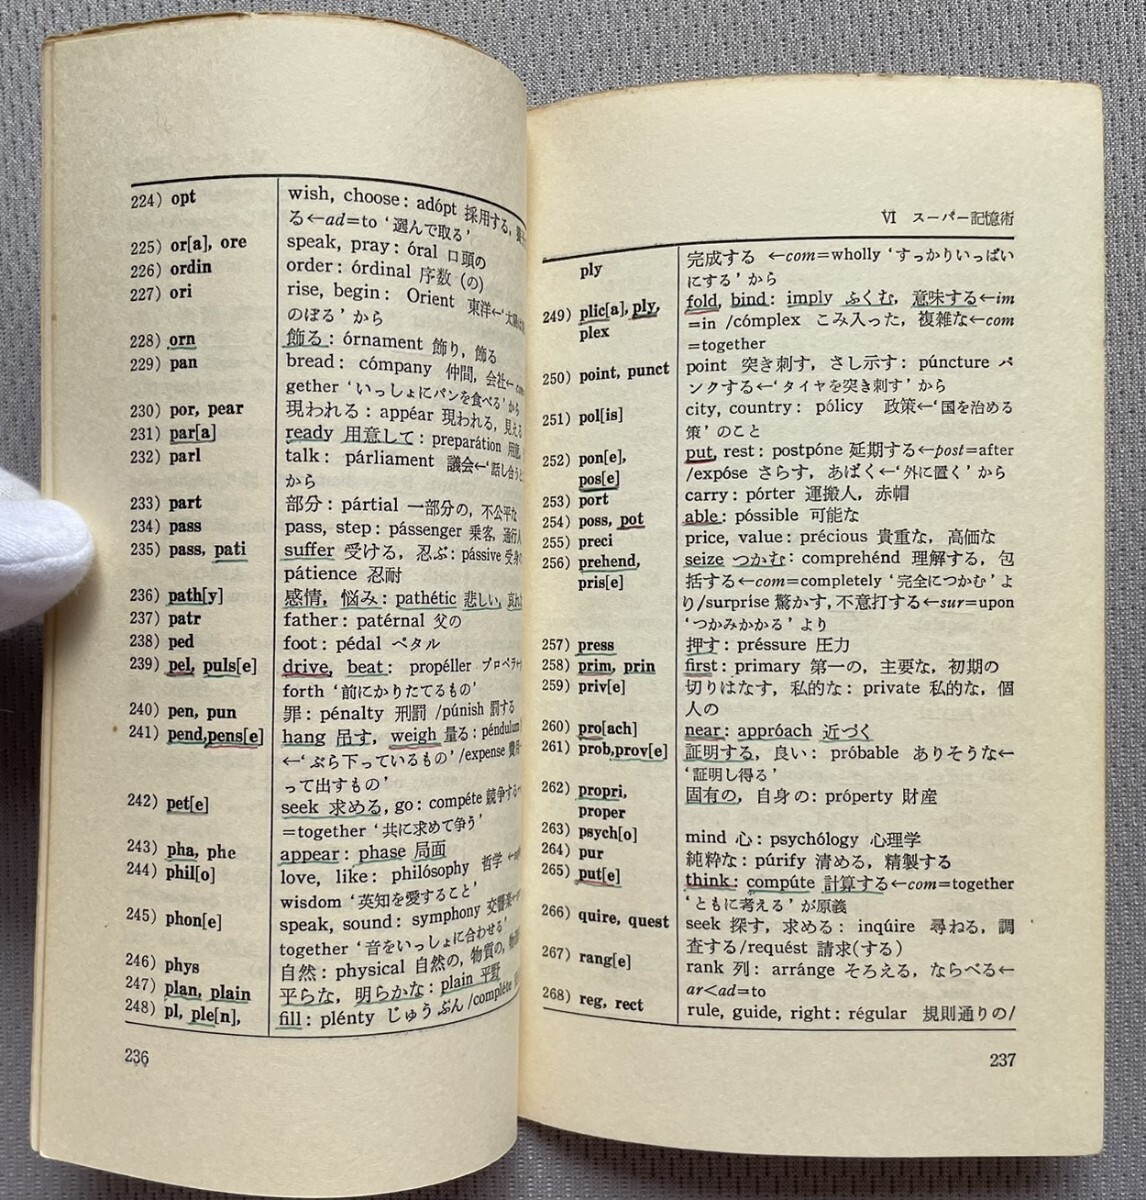 224) opt wish, choose: adópt 採用する,
る←ad=to ‘選んで取る’
225) or[a], ore speak, pray: óral 口頭の
226) ordin order: órdinal 序数 (の)
227) ori rise, begin: Orient 東洋←‘太陽
のぼる’から
228) orn 飾る: órnament 飾り, 飾る
229) pan bread: cómpany 仲間, 会社←
gether ‘いっしょにパンを食べる’から
230) por, pear 現われる: appéar 現われる, 見える
231) par[a] ready 用意して: preparátion 用意,
232) parl talk: párliament 議会←‘話し合うと
から
233) part 部分: pártial 一部分の, 不公平な
234) pass pass, step: pássenger 乗客, 通行人
235) pass, pati suffer 受ける, 忍ぶ: pássive 受身の
pátience 忍耐
236) path[y] 感情, 悩み: pathétic 悲しい, 哀れ
237) patr father: patérnal 父の
238) ped foot: pédal ペタル
239) pel, puls[e] drive, beat: propéller プロペラ
forth ‘前にかりたてるもの’
240) pen, pun 罪: pénalty 刑罰 /púnish 罰する
241) pend,pens[e] hang 吊す, weigh 量る: péndulum
←‘ぶら下っているもの’/expense 費用
って出すもの’
242) pet[e] seek 求める, go: compéte 競争する
=together ‘共に求めて争う’
243) pha, phe appear: phase 局面
244) phil[o] love, like: philósophy 哲学
wisdom ‘英知を愛すること’
245) phon[e] speak, sound: symphony 交響楽
together ‘音をいっしょに合わせる’
246) phys 自然: physical 自然の, 物質の,
247) plan, plain 平らな, 明らかな: plain 平野
248) pl, ple[n], fill: plénty じゅうぶん/compléte
236
VI スーパー記憶術
ply 完成する ←com=wholly ‘すっかりいっぱい
にする’から
249) plic[a], ply, fold, bind: imply ふくむ, 意味する←im
plex =in /cómplex こみ入った, 複雑な←com
=together
250) point, punct point 突き刺す, さし示す: púncture パ
ンクする←‘タイヤを突き刺す’から
251) pol[is] city, country: pólicy 政策←‘国を治める
策’のこと
252) pon[e], put, rest: postpóne 延期する←post=after
pos[e] /expóse さらす, あばく←‘外に置く’から
253) port carry: pórter 運搬人, 赤帽
254) poss, pot able: póssible 可能な
255) preci price, value: précious 貴重な, 高価な
256) prehend, seize つかむ: comprehénd 理解する, 包
pris[e] 括する←com=completely ‘完全につかむ’よ
り/surprise 驚かす, 不意打する←sur=upon
‘つかみかかる’より
257) press 押す: préssure 圧力
258) prim, prin first: primary 第一の, 主要な, 初期の
259) priv[e] 切りはなす, 私的な: private 私的な, 個
人の
260) pro[ach] near: appróach 近づく
261) prob,prov[e] 証明する, 良い: próbable ありそうな←
‘証明し得る’
262) propri, 固有の, 自身の: próperty 財産
proper
263) psych[o] mind 心: psychólogy 心理学
264) pur 純粋な: púrify 清める, 精製する
265) put[e] think: compúte 計算する←com=together
‘ともに考える’が原義
266) quire, quest seek 探す, 求める: inqúire 尋ねる, 調
査する/requést 請求(する)
267) rang[e] rank 列: arránge そろえる, ならべる←
ar<ad=to
268) reg, rect rule, guide, right: régular 規則通りの/
237